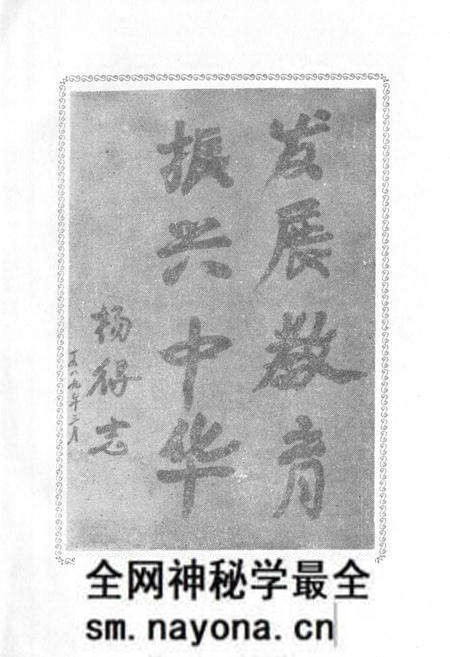 发展教育
振兴中华
杨得志
一九八九年二月
全网神秘学最全
sm.nayona.cn